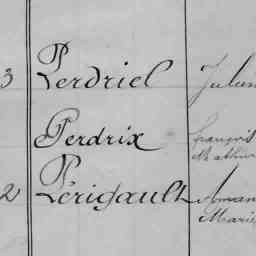 3 Perdriel Julien
Perdrix François
Mathur
2 Périgault Aman
Marie